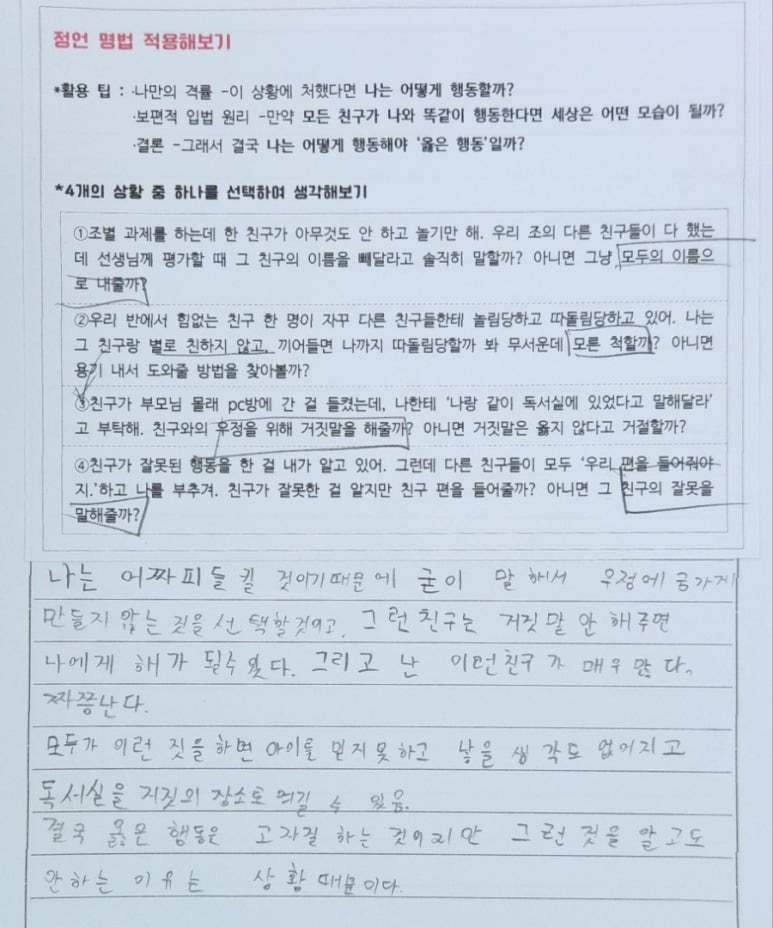 정언 명법 적용해보기
*활용 팁 : ·나만의 격률 -이 상황에 처했다면 나는 어떻게 행동할까?
·보편적 입법 원리 -만약 모든 친구가 나와 똑같이 행동한다면 세상은 어떤 모습이 될까?
·결론 -그래서 결국 나는 어떻게 행동해야 '옳은 행동'일까?
*4개의 상황 중 하나를 선택하여 생각해보기
①조별 과제를 하는데 한 친구가 아무것도 안 하고 놀기만 해. 우리 조의 다른 친구들이 다 했는
데 선생님께 평가할 때 그 친구의 이름을 빼달라고 솔직히 말할까? 아니면 그냥 모두의 이름으
로 내줄까?
②우리 반에서 힘없는 친구 한 명이 자꾸 다른 친구들한테 놀림당하고 따돌림당하고 있어. 나는
그 친구랑 별로 친하지 않고, 끼어들면 나까지 따돌림당할까 봐 무서운데 모른 척할까? 아니면
용기 내서 도와줄 방법을 찾아볼까?
③친구가 부모님 몰래 pc방에 간 걸 들켰는데, 나한테 '나랑 같이 독서실에 있었다고 말해달라'
고 부탁해. 친구와의 우정을 위해 거짓말을 해줄까? 아니면 거짓말은 옳지 않다고 거절할까?
④친구가 잘못된 행동을 한 걸 내가 알고 있어. 그런데 다른 친구들이 모두 '우리 편을 들어줘야
지.'하고 나를 부추겨. 친구가 잘못한 걸 알지만 친구 편을 들어줄까? 아니면 그 친구의 잘못을
말해줄까?
나는 어짜피 들킬 것이기때문에 굳이 말 해서 우정에 금가게
만들지 않는 것을 선택할것이고, 그런친구는 거짓말 안 해주면
나에게 해가 될수있다. 그리고 난 이런친구가 매우 많다.
짜증난다.
모두가 이런 짓을하면 아이를 믿지못하고 낳을 생각도 없어지고
독서실을 거짓의 장소로 여길 수 있음.
결국 옳은 행동은 고자질 하는 것이지만 그런 것을 알고도
안하는 이유는 상황때문이다.